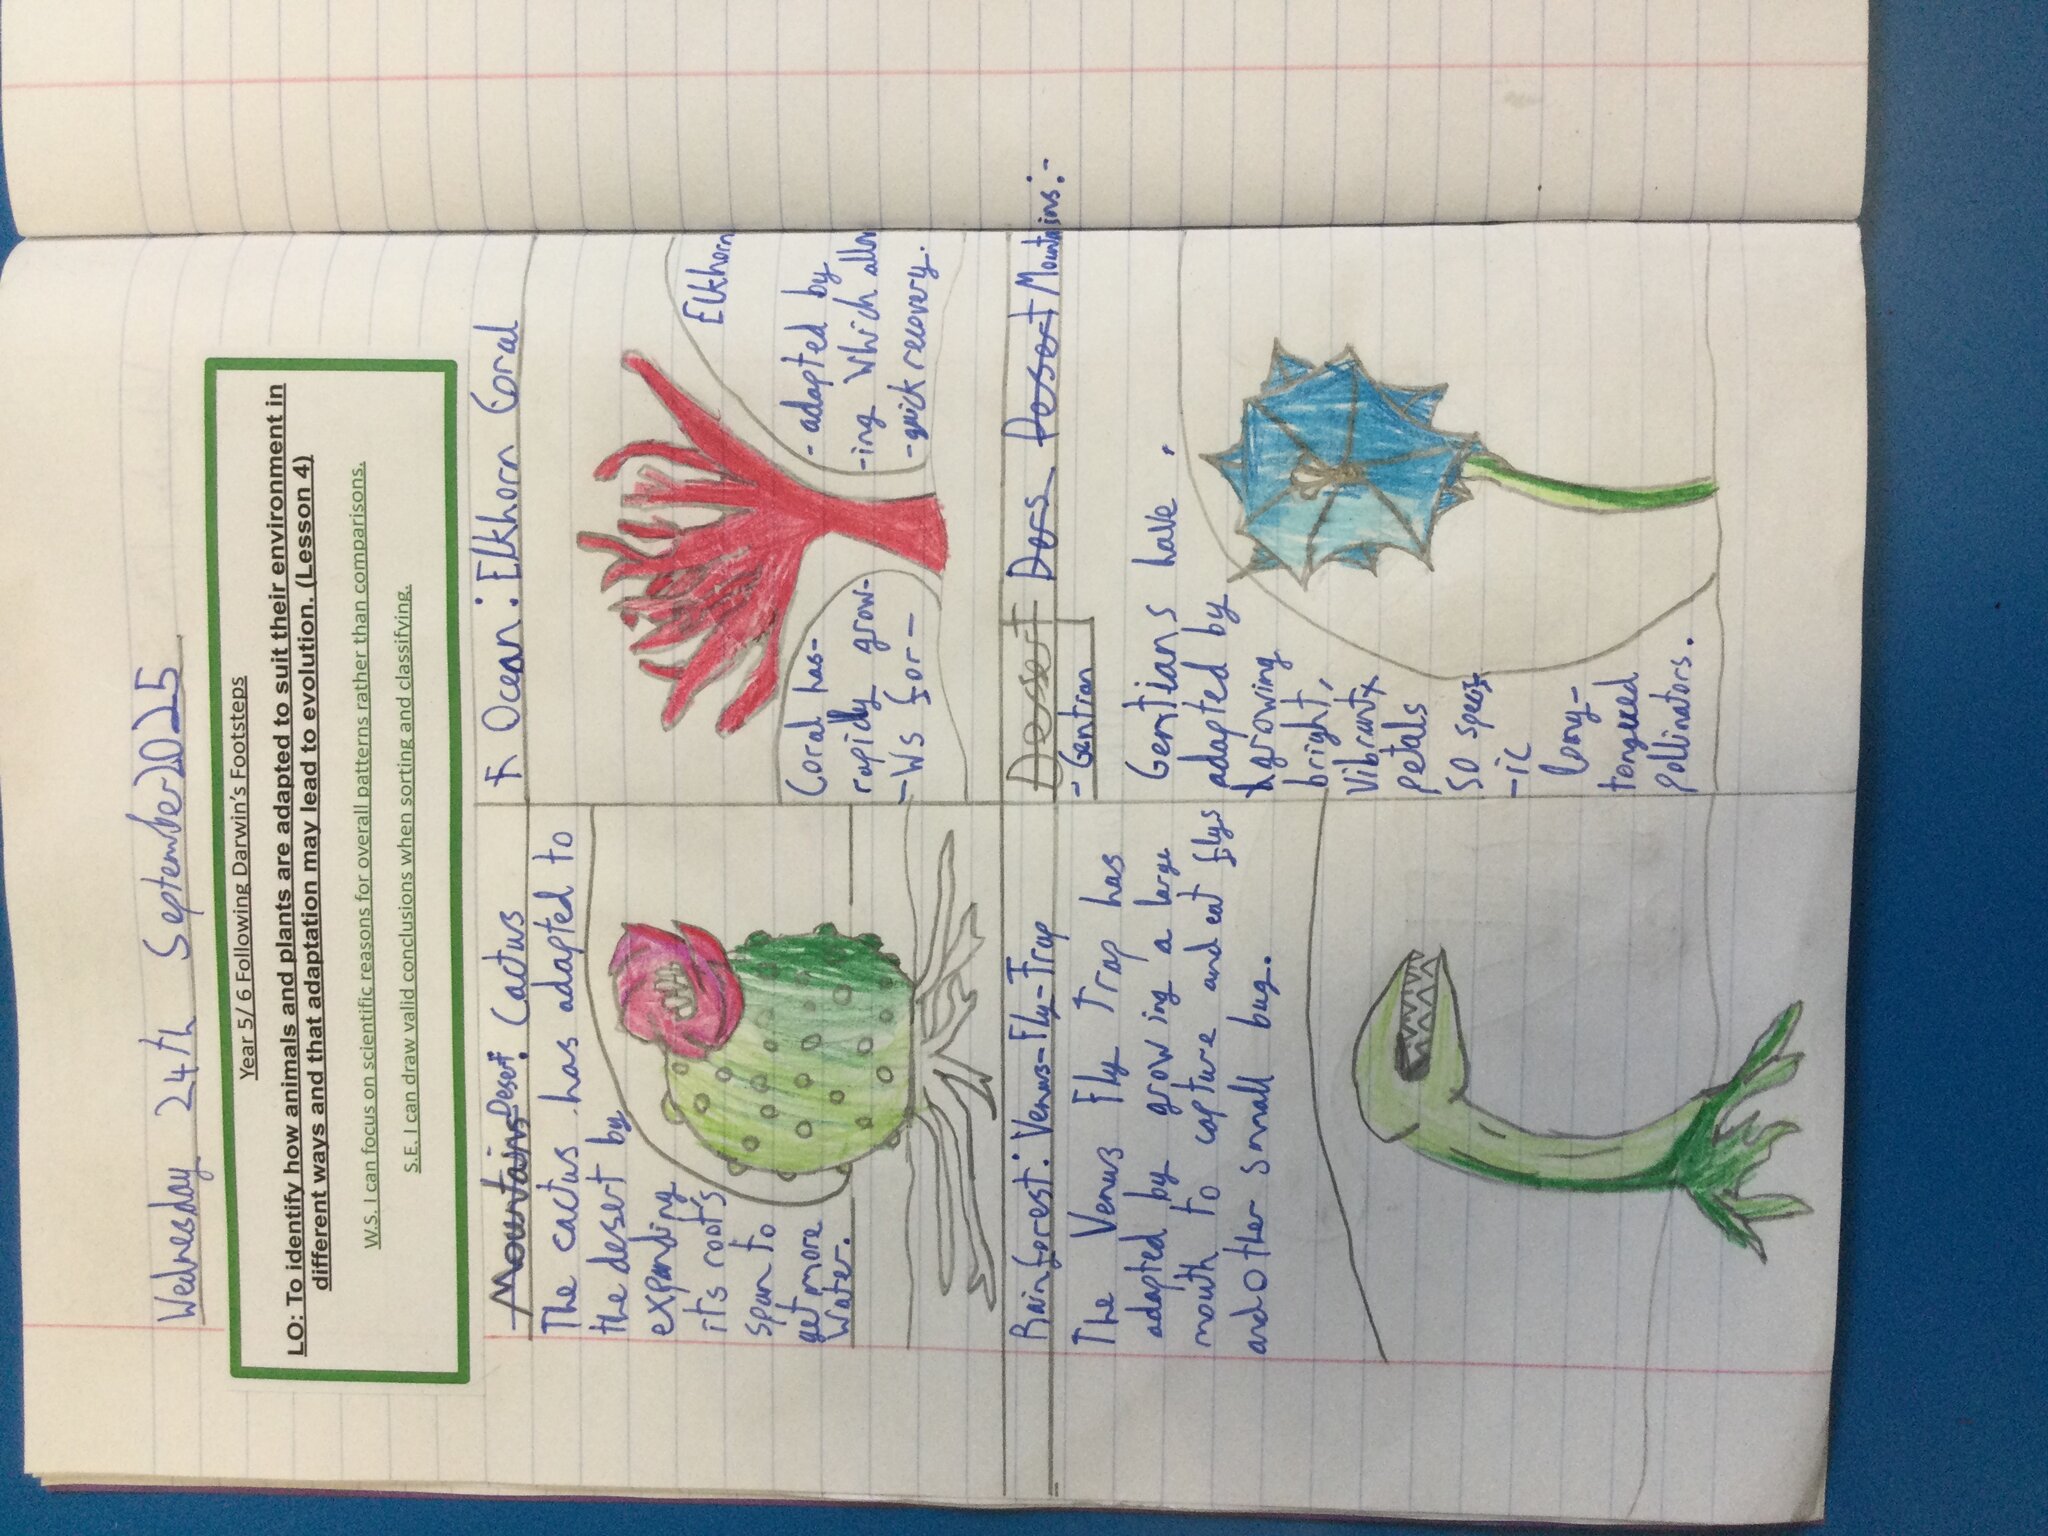 Wednesday 24th September 2025
Year 5/ 6 Following Darwin's Footsteps
LO: To identify how animals and plants are adapted to suit their environment in
different ways and that adaptation may lead to evolution. (Lesson 4)
W.S. I can focus on scientific reasons for overall patterns rather than comparisons.
S.E. I can draw valid conclusions when sorting and classifying.
Mountains Desert: Cactus
The cactus has adapted to
the desert by
expanding
it's root's
span to
get more
water.
Ocean: Elkhorn Coral
Elkhorn
Coral has-
- adapted by
rapidly grow-
-ing which allo
-ws for-
-quick recovery.
Rainforest: Venus-Fly-Trap
The Venus Fly Trap has
adapted by growing a large
mouth to capture and eat flys
and other small bug.
Desert Ders Desert Mountains:-
- Gentian
Gentians have
adapted by
growing
bright,
Vibrant
petals
so
-ic
long-
tongued
pollinators.